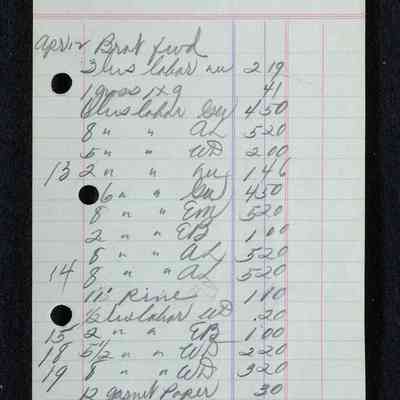 Apr 12 Brot fwd
3 hrs labor 2 19
1 gross 1 x 9 41
6 hrs labor Gu 4 50
8 " " AL 5 20
5 " " WD 2 00
13 2 " " 1 46
6 " " Gu 4 50
8 " " EM 5 20
2 " " EB 1 00
8 " " AL 5 20
14 8 " " AL 5 20
11' Pine 1 10
1/2 hrs labor WD .20
15 2 " " EB 1 00
18 5 1/2 " " WD 2 20
19 8 " " WD 3 20
12 garnet Paper 30